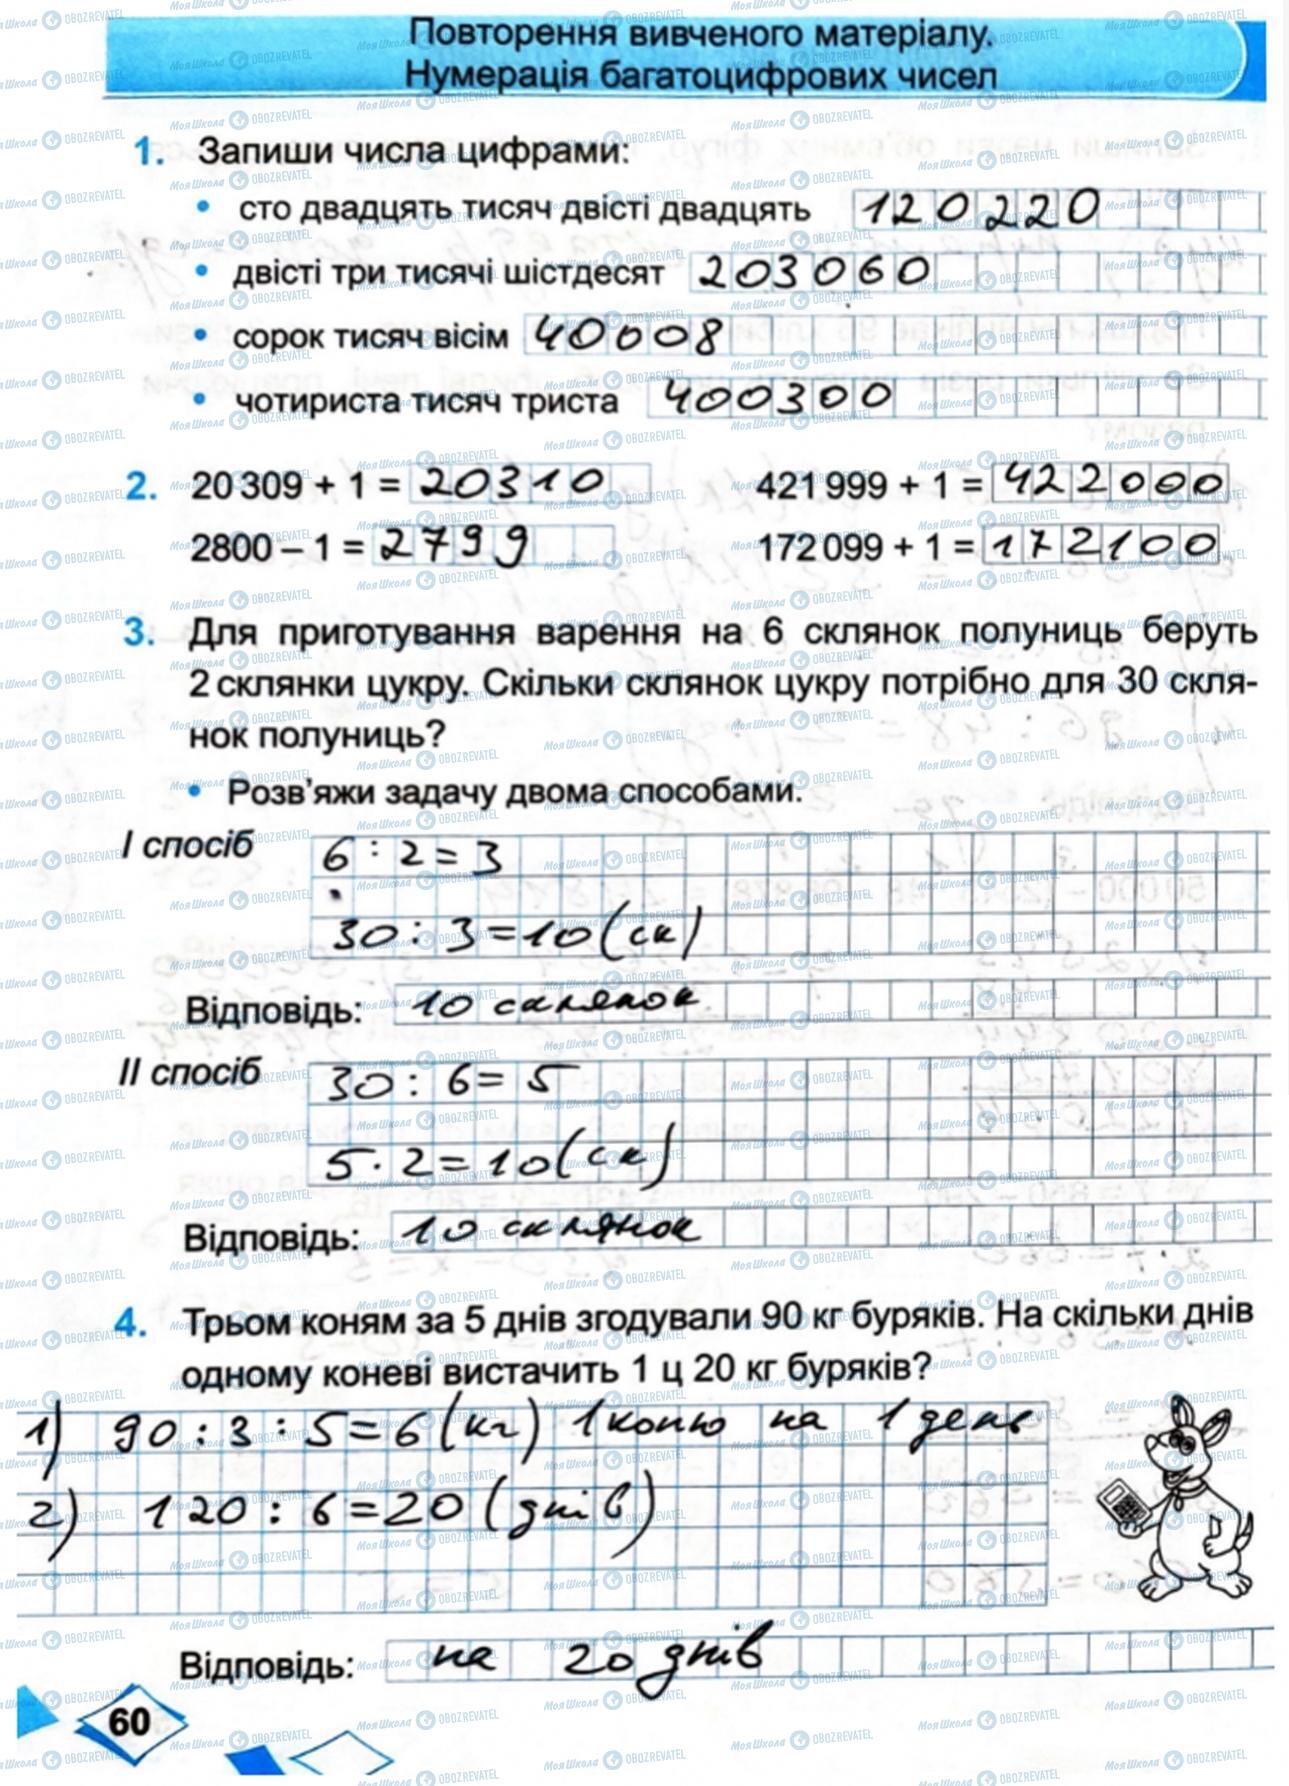 Повторення вивченого матеріалу.
Нумерація багатоцифрових чисел
1. Запиши числа цифрами:
• сто двадцять тисяч двісті двадцять 120220
• двісті три тисячі шістдесят 203060
• сорок тисяч вісім 40008
• чотириста тисяч триста 400300
2. 20 309 + 1 = 20310 421 999 + 1 = 422000
2800 – 1 = 2799 172 099 + 1 = 172100
3. Для приготування варення на 6 склянок полуниць беруть
2 склянки цукру. Скільки склянок цукру потрібно для 30 скля-
нок полуниць?
• Розв'яжи задачу двома способами.
I спосіб 6 : 2 = 3
30 : 3 = 10 (ск)
Відповідь: 10 склянок
II спосіб 30 : 6 = 5
5 · 2 = 10 (ск)
Відповідь: 10 склянок
4. Трьом коням за 5 днів згодували 90 кг буряків. На скільки днів
одному коневі вистачить 1 ц 20 кг буряків?
1) 90 : 3 : 5 = 6 (кг) 1 коню на 1 день
2) 120 : 6 = 20 (днів)
Відповідь: на 20 днів
60
МояШкола OBOZREVATEL